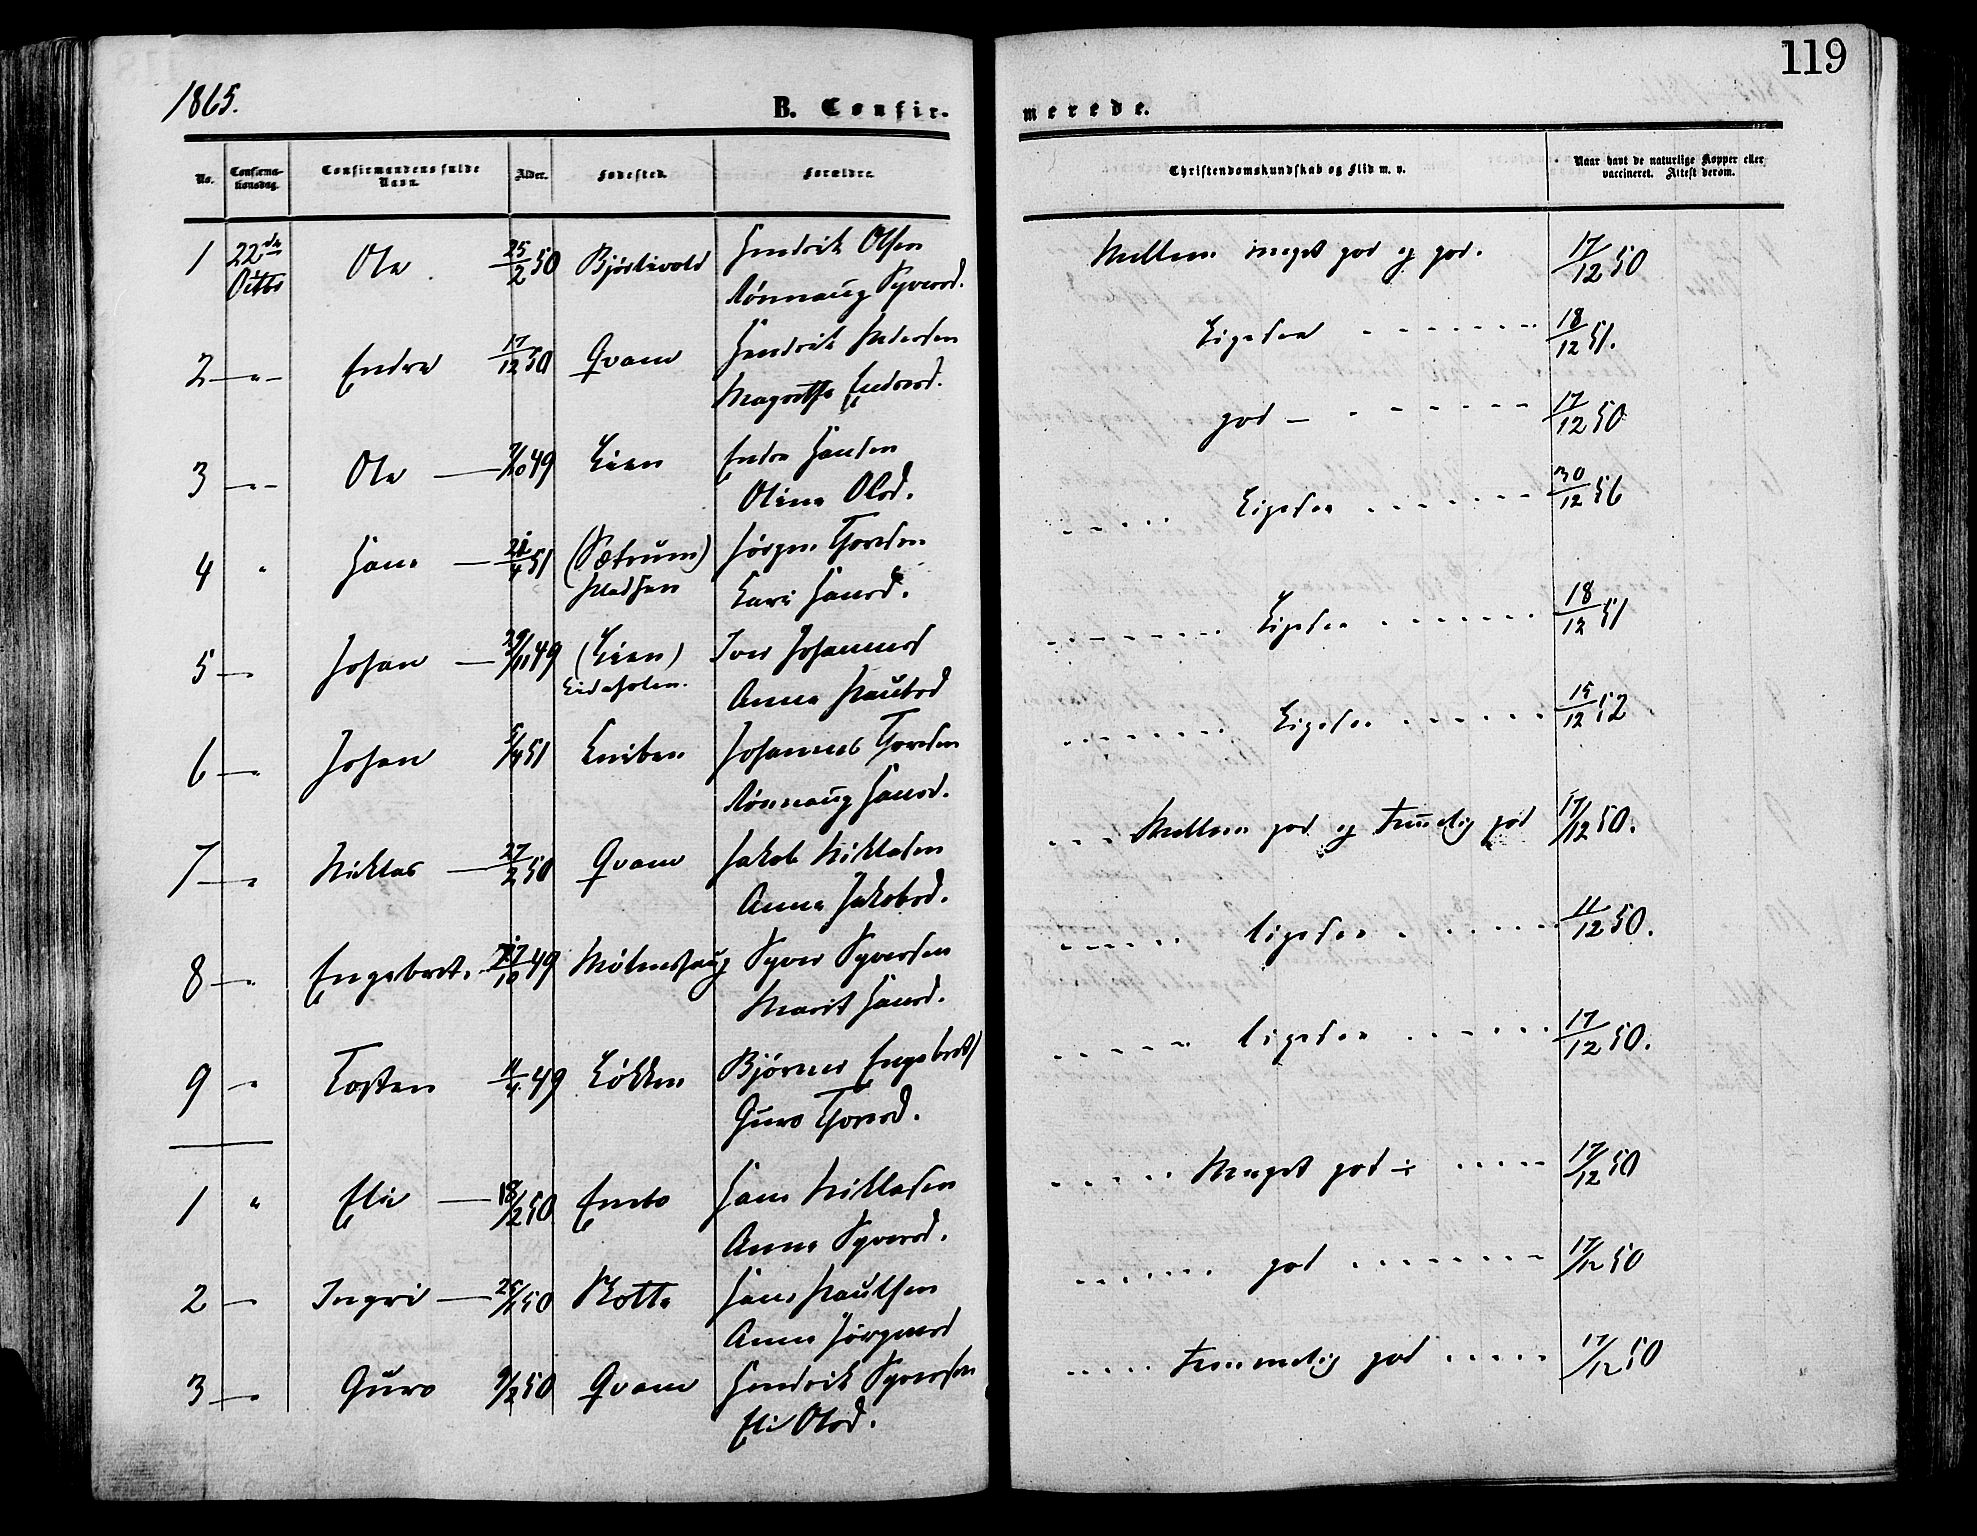 1865.
B. Confir-
merede.
119
No.
Confirma-
tionsdag.
Confirmandens fulde
Navn.
Alder.
Fødested.
Forældre.
Christendomskundskab og Flid m. v.
Naar havt de naturlige Kopper eller
vaccineret. Attest derom.
1 22de Ole 25/2 50 Hendrik Olsen Mellem meget god og god. 17/12 50
Octbr Rønnaug Syversd.
2 — " — Endre 17/12 50 Qvam Hendrik Pedersen Ligesaa - - - - - - 18/12 51.
Magrethe Endresd.
3 — " — Ole — 49 Lien Endre Hansen god — - - - - - - 17/12 50
Oline Olsd.
4 " Hans — 51 (Sætrum) Jørgen Thoresen - - - - Ligesaa - - - - - - 30/12 56
Pladsen Kari Hansd.
5 — " Johan — 29/11 49 (Lien) Iver Johannes - - - - - - Ligesaa - - - - - - 18/12 51
Anne Paulsd
6 — " Johan 51 Johannes Thoresen - - - - - - Ligesaa - - - - - - 15/12 52
Rønnaug Hansd.
7 — " Niklas — 27/2 50 Qvam Jakob Niklasen - - - Mellem god og temmelig god 17/12 50.
Anne Jakobsd.
8 — " Engebret. 49 Mølmshaug Syver Syversen - - - - - ligesaa - - - - - 11/12 50.
Marit Hansd.
9 — " Tosten — 11/4 49 Løkken Bjørner Engebrets - - - - - ligesaa - - - - - 17/12 50.
Guro Thoresd.
1 " Eli — 18/2 50 Embo Hans Niklasen - - - - - Meget god - - - - - 17/12 50
Anne Syversd.
2 — " Ingri — 50 Hans Paulsen - - - - - - god - - - - - - 17/12 50
Anne Jørgensd
3 — " Guro 9/2 50 Qvam Hendrik Syversen - - - - - Temmelig god - - - - - 17/12 50
Eli Olsd.